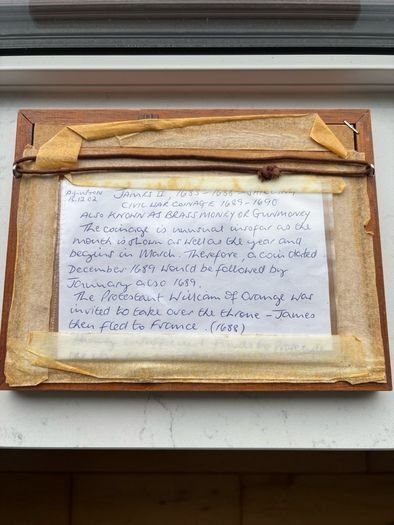 12.12.02
JAMES II, 1685-1688 - SHILLING
CIVIL WAR COINAGE 1689-1690
ALSO KNOWN AS BRASS MONEY OR GUNMONEY
The coinage is unusual insofar as the
month is shown as well as the year and
begins in March. Therefore, a coin dated
December 1689 would be followed by
January also 1689.
The Protestant William of Orange was
invited to take over the throne - James
then fled to France. (1688)